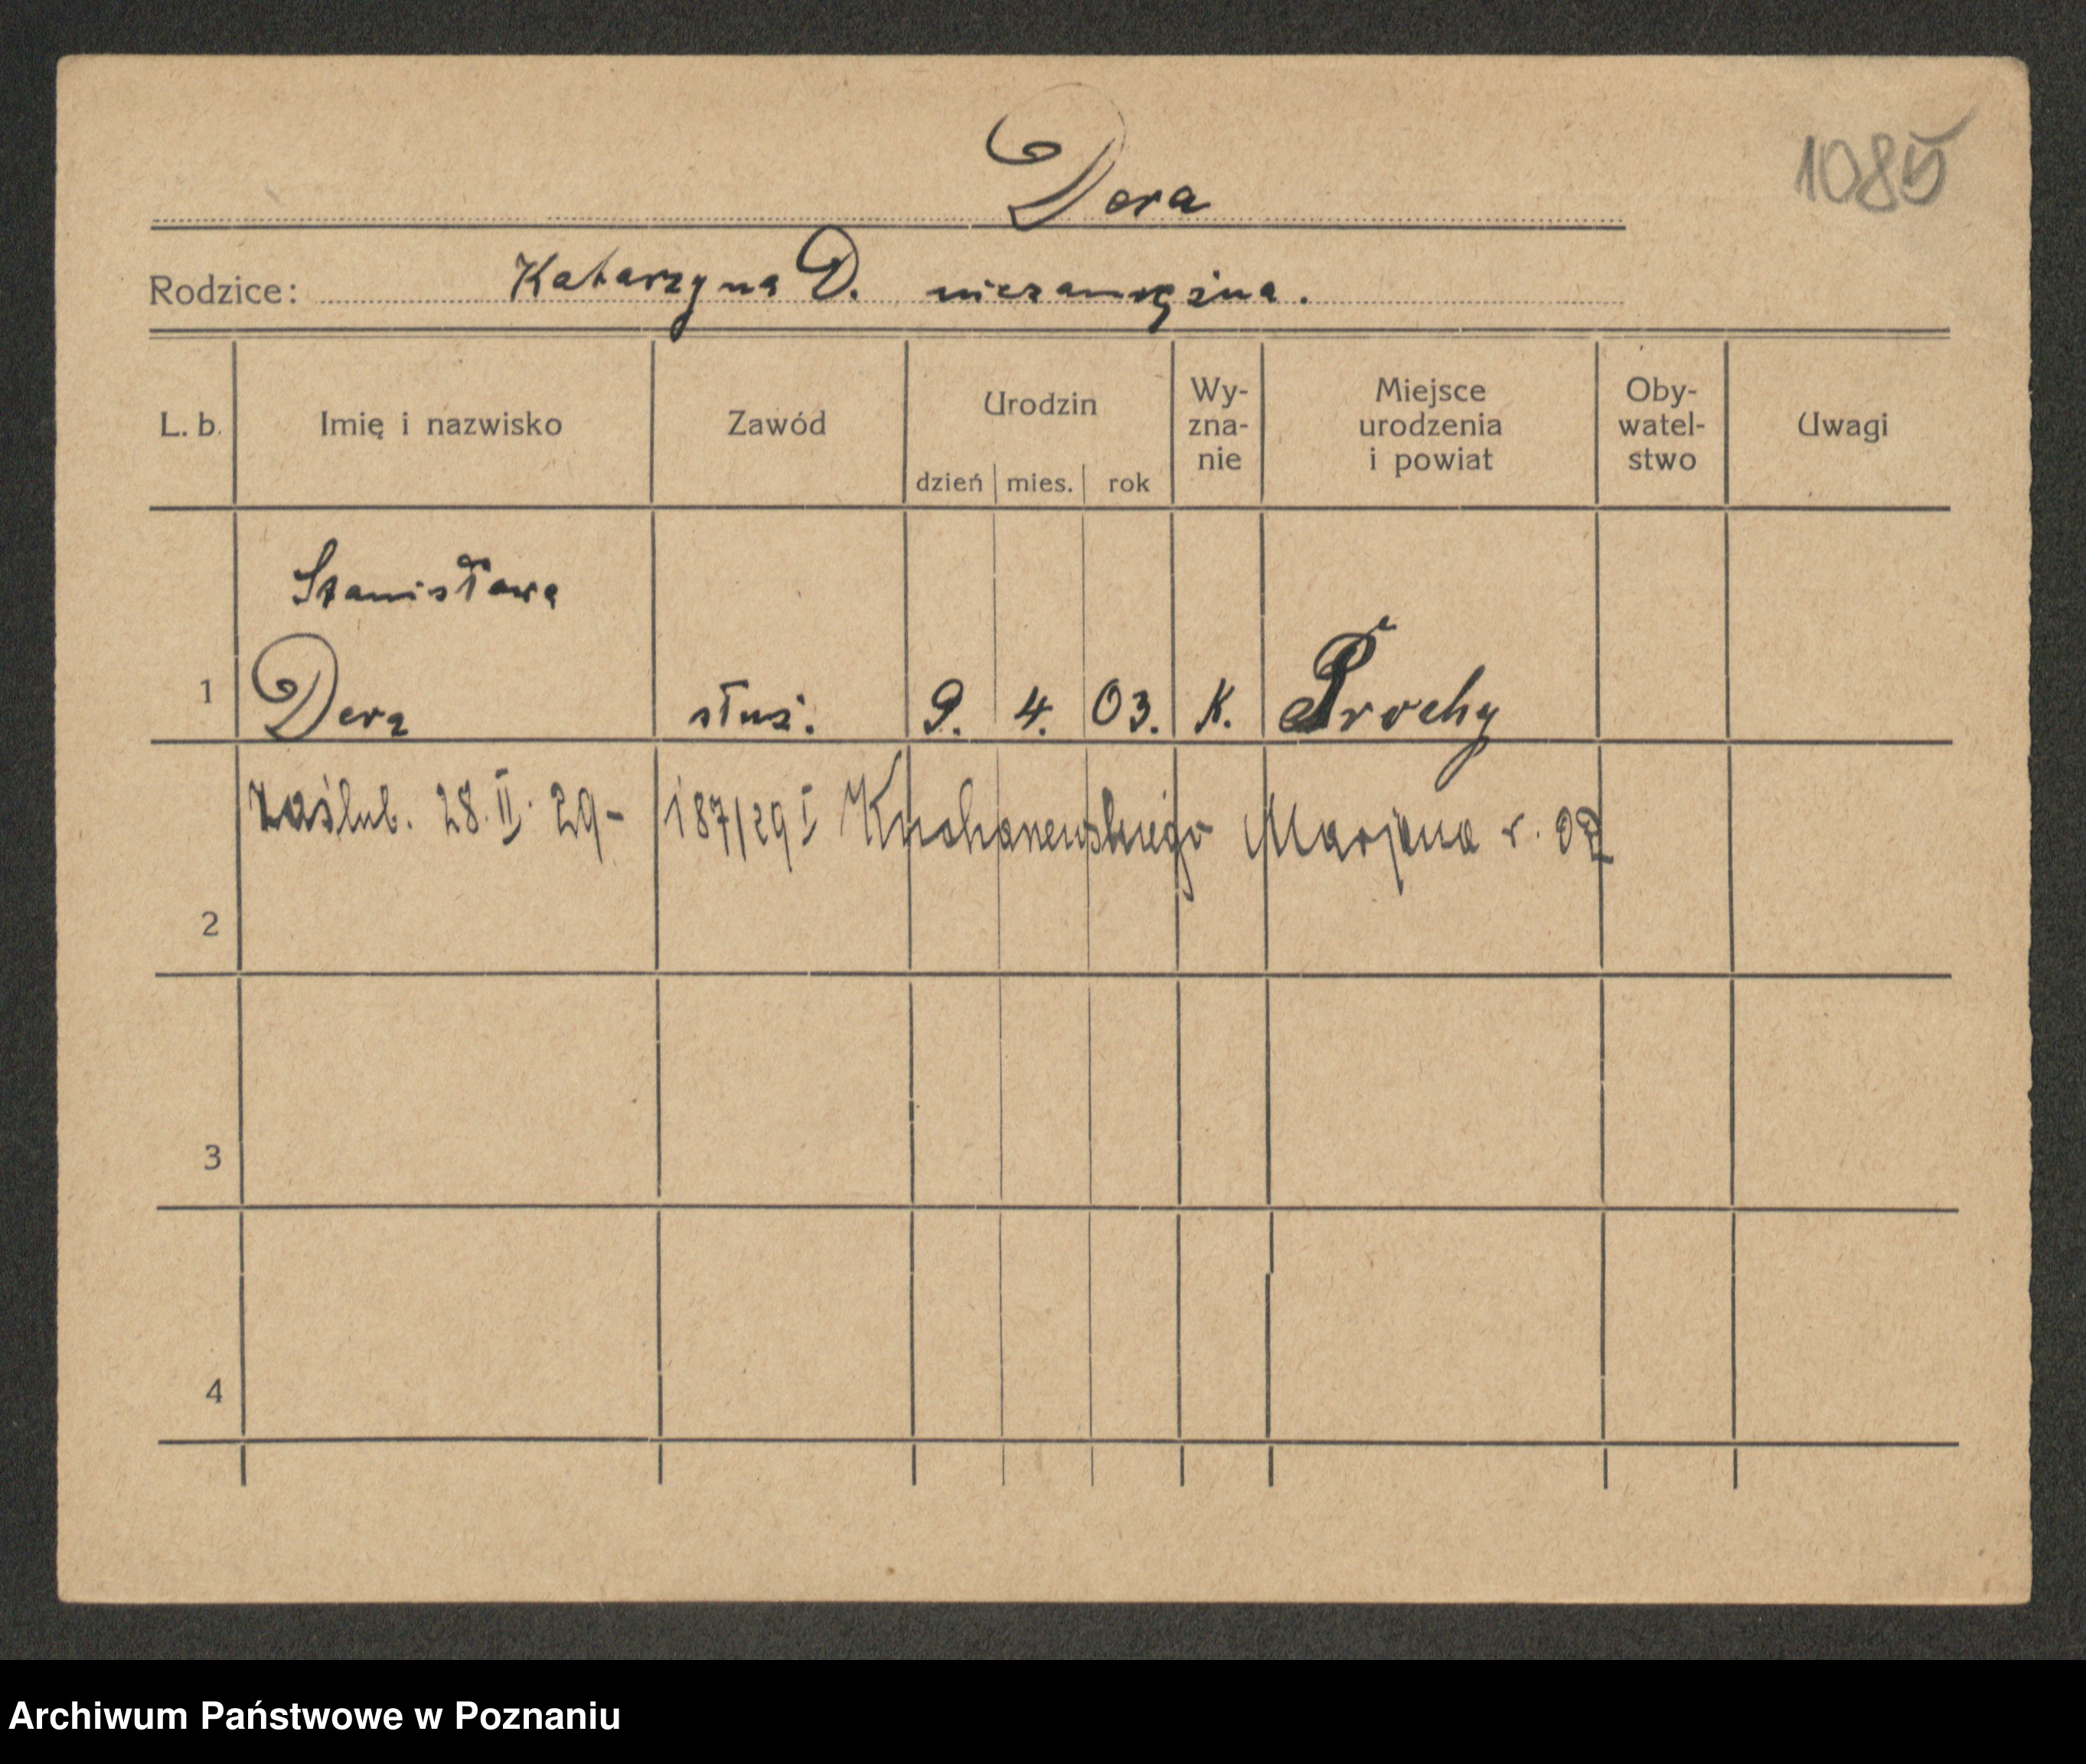 1085
Dera
Rodzice: Katarzyna D. niezamężna.
L. b. Imię i nazwisko Zawód Urodzin dzień mies. rok Wy-zna-nie Miejsce urodzenia i powiat Oby-watel-stwo Uwagi
Stanisława
1 Dera służ. 9. 4. 03. K. Prochy
zaślub. 28. II. 29- 187/29 I Kuchanewskiego Marjana r. 02
2
3
4
Archiwum Państwowe w Poznaniu